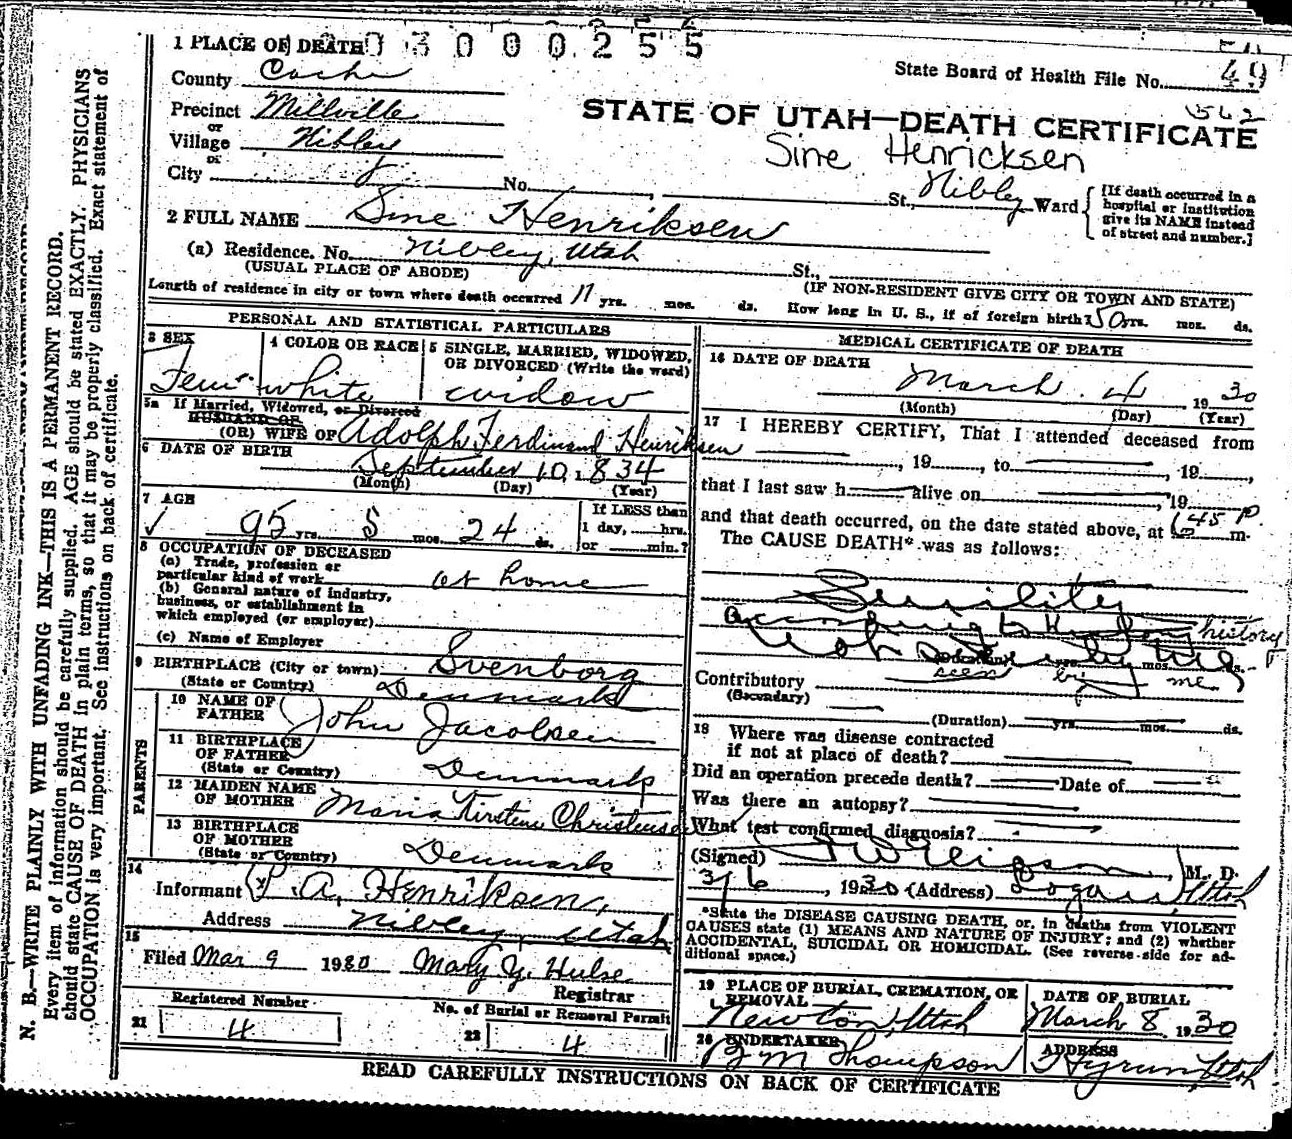 1 PLACE OF DEATH
0 3 0 0 0 2 5 5
County Cache
Precinct Millville
or
Village Nibley
or
City
No. St., Nibley Ward
State Board of Health File No. 49
562
STATE OF UTAH—DEATH CERTIFICATE
Sine Henricksen
[If death occurred in a
hospital or institution
give its NAME instead
of street and number.]
2 FULL NAME Sine Henriksen
(a) Residence. No. Nibley, Utah St.,
(USUAL PLACE OF ABODE) (IF NON-RESIDENT GIVE CITY OR TOWN AND STATE)
Length of residence in city or town where death occurred 11 yrs. mos. ds. How long in U. S., if of foreign birth? 50 yrs. mos. ds.
PERSONAL AND STATISTICAL PARTICULARS
3 SEX 4 COLOR OR RACE 5 SINGLE, MARRIED, WIDOWED,
OR DIVORCED (Write the word)
Fem white widow
5a If Married, Widowed, or Divorced
HUSBAND OF
(OR) WIFE OF Adolph Ferdinand Henriksen
6 DATE OF BIRTH September 10, 1834
(Month) (Day) (Year)
7 AGE If LESS than
95 yrs. 5 mos. 24 ds. 1 day, hrs.
or min.?
8 OCCUPATION OF DECEASED
(a) Trade, profession or
particular kind of work at home
(b) General nature of industry,
business, or establishment in
which employed (or employer)
(c) Name of Employer
9 BIRTHPLACE (City or town) Svenborg
(State or Country) Denmark
PARENTS
10 NAME OF
FATHER John Jacobsen
11 BIRTHPLACE
OF FATHER
(State or Country) Denmark
12 MAIDEN NAME
OF MOTHER Maria Kirstine Christensen
13 BIRTHPLACE
OF MOTHER
(State or Country) Denmark
14
Informant A. Henriksen,
Address Nibley, Utah
15
Filed Mar 9 1930 Mary Y. Hulse
Registrar
Registered Number No. of Burial or Removal Permit
21 4 22 4
MEDICAL CERTIFICATE OF DEATH
16 DATE OF DEATH March 4 1930
(Month) (Day) (Year)
17 I HEREBY CERTIFY, That I attended deceased from
, 19 , to , 19 ,
that I last saw h alive on , 19
and that death occurred, on the date stated above, at 6:45 P. m.
The CAUSE DEATH* was as follows:
Senility
according to history
Not seen by me
(Duration) yrs. mos. ds.
seen by me
Contributory
(Secondary)
(Duration) yrs. mos. ds.
18 Where was disease contracted
if not at place of death?
Did an operation precede death? Date of
Was there an autopsy?
What test confirmed diagnosis?
(Signed) , M. D.
3/6 , 1930 (Address) Logan, Utah
*State the DISEASE CAUSING DEATH, or, in deaths from VIOLENT
CAUSES state (1) MEANS AND NATURE OF INJURY; and (2) whether
ACCIDENTAL, SUICIDAL OR HOMICIDAL. (See reverse side for ad-
ditional space.)
19 PLACE OF BURIAL, CREMATION, OR DATE OF BURIAL
REMOVAL
Newton, Utah March 8 1930
20 UNDERTAKER ADDRESS
B M Thompson Hyrum, Utah
READ CAREFULLY INSTRUCTIONS ON BACK OF CERTIFICATE
N. B.—WRITE PLAINLY WITH UNFADING INK—THIS IS A PERMANENT RECORD.
Every item of information should be carefully supplied. AGE should be stated EXACTLY. PHYSICIANS
should state CAUSE OF DEATH in plain terms, so that it may be properly classified. Exact statement of
OCCUPATION is very important. See instructions on back of certificate.